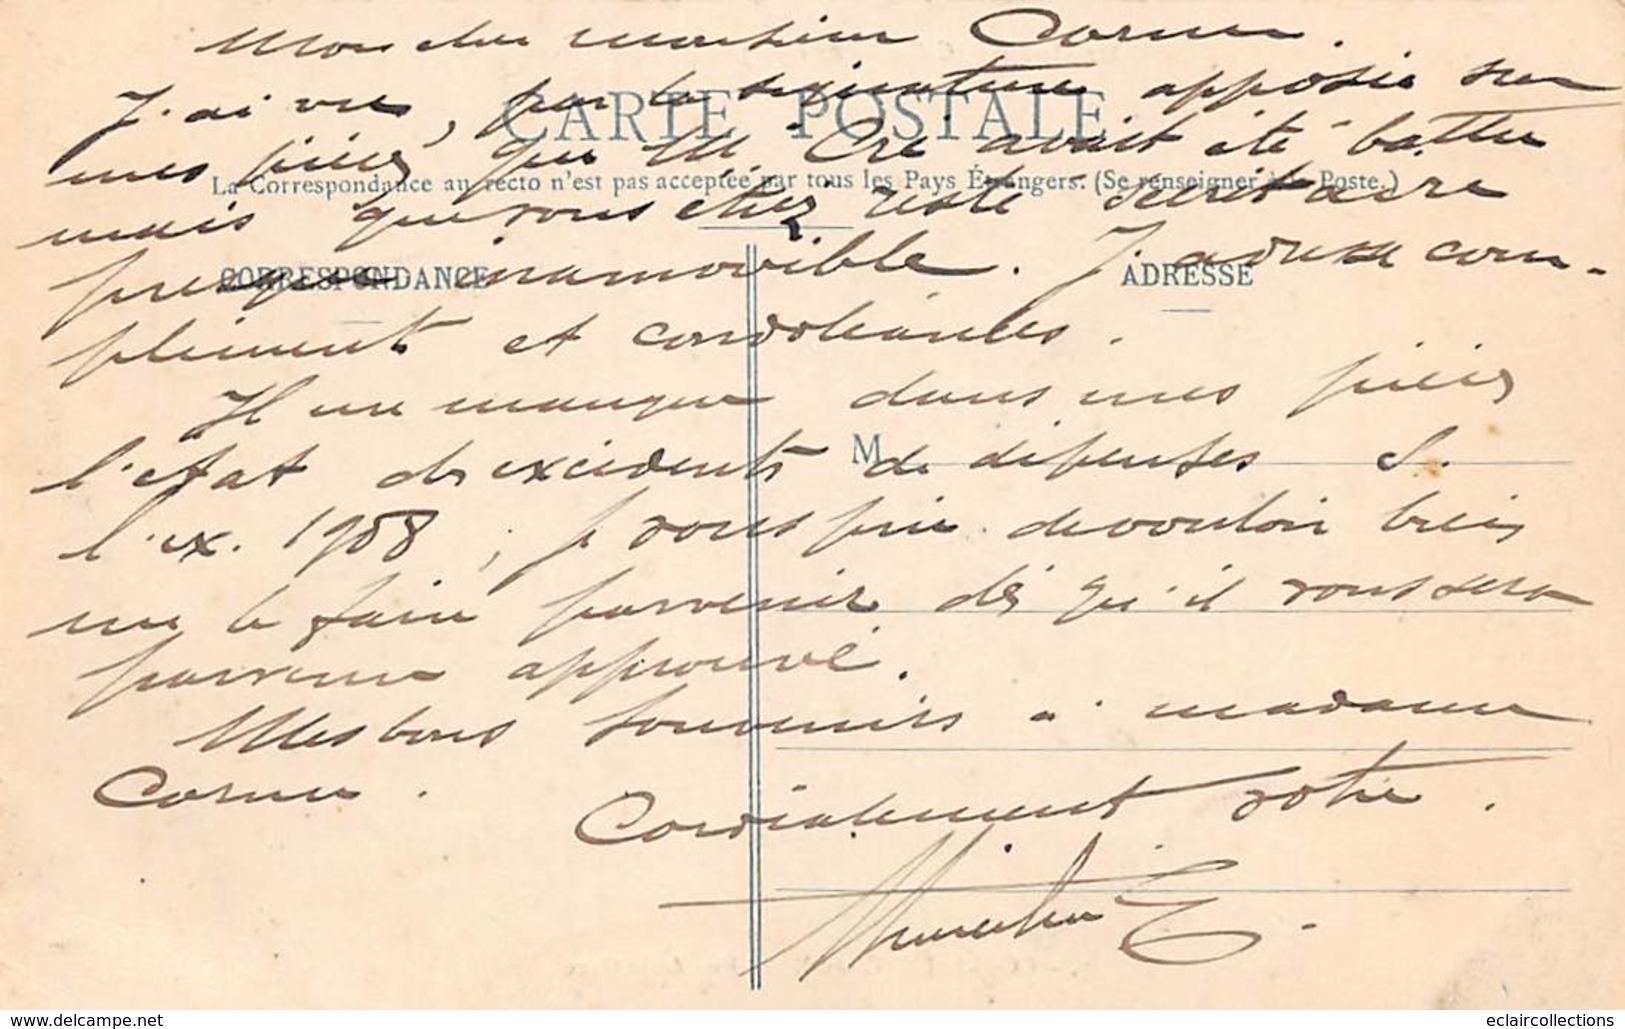 Mon cher monsieur Cornu.
J'ai vu, par la signature apposée sur
CARTE POSTALE
mes pièces, que M. Cré avait été battu
La Correspondance au recto n'est pas acceptée par tous les Pays Étrangers. (Se renseigner à la Poste.)
mais que vous étiez resté secrétaire
presque inamovible. J'adresse com-
CORRESPONDANCE
ADRESSE
pliments et condoléances.
Il me manque dans mes pièces
l'état des excédents de dépenses s.
M
l'ex. 1908 ; je vous prie de vouloir bien
me le faire parvenir dès qu'il vous sera
parvenu approuvé.
Mes bons souvenirs à madame
Cornu.
Cordialement votre.
delcampe.net
eclaircollections